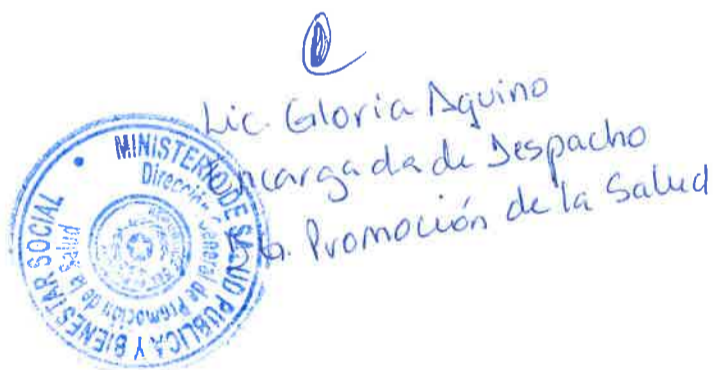 Lic. Gloria Aquino
Encargada de Despacho
D.G. Promoción de la Salud
MINISTERIO DE SALUD PUBLICA Y BIENESTAR SOCIAL
Dirección General de Promoción de la Salud